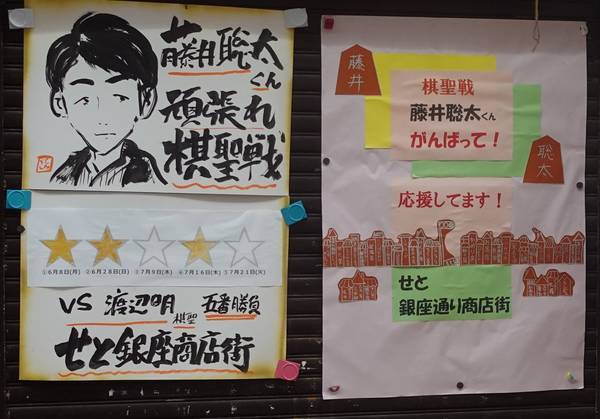 藤井聡太
くん
頑張れ
棋聖戦
①6月8日(月) ②6月28日(日) ③7月9日(木) ④7月16日(木) ⑤7月21日(火)
VS 渡辺明 棋聖 五番勝負
せと銀座商店街
藤井
棋聖戦
藤井聡太くん
がんばって!
聡太
応援してます!
せと
銀座通り商店街